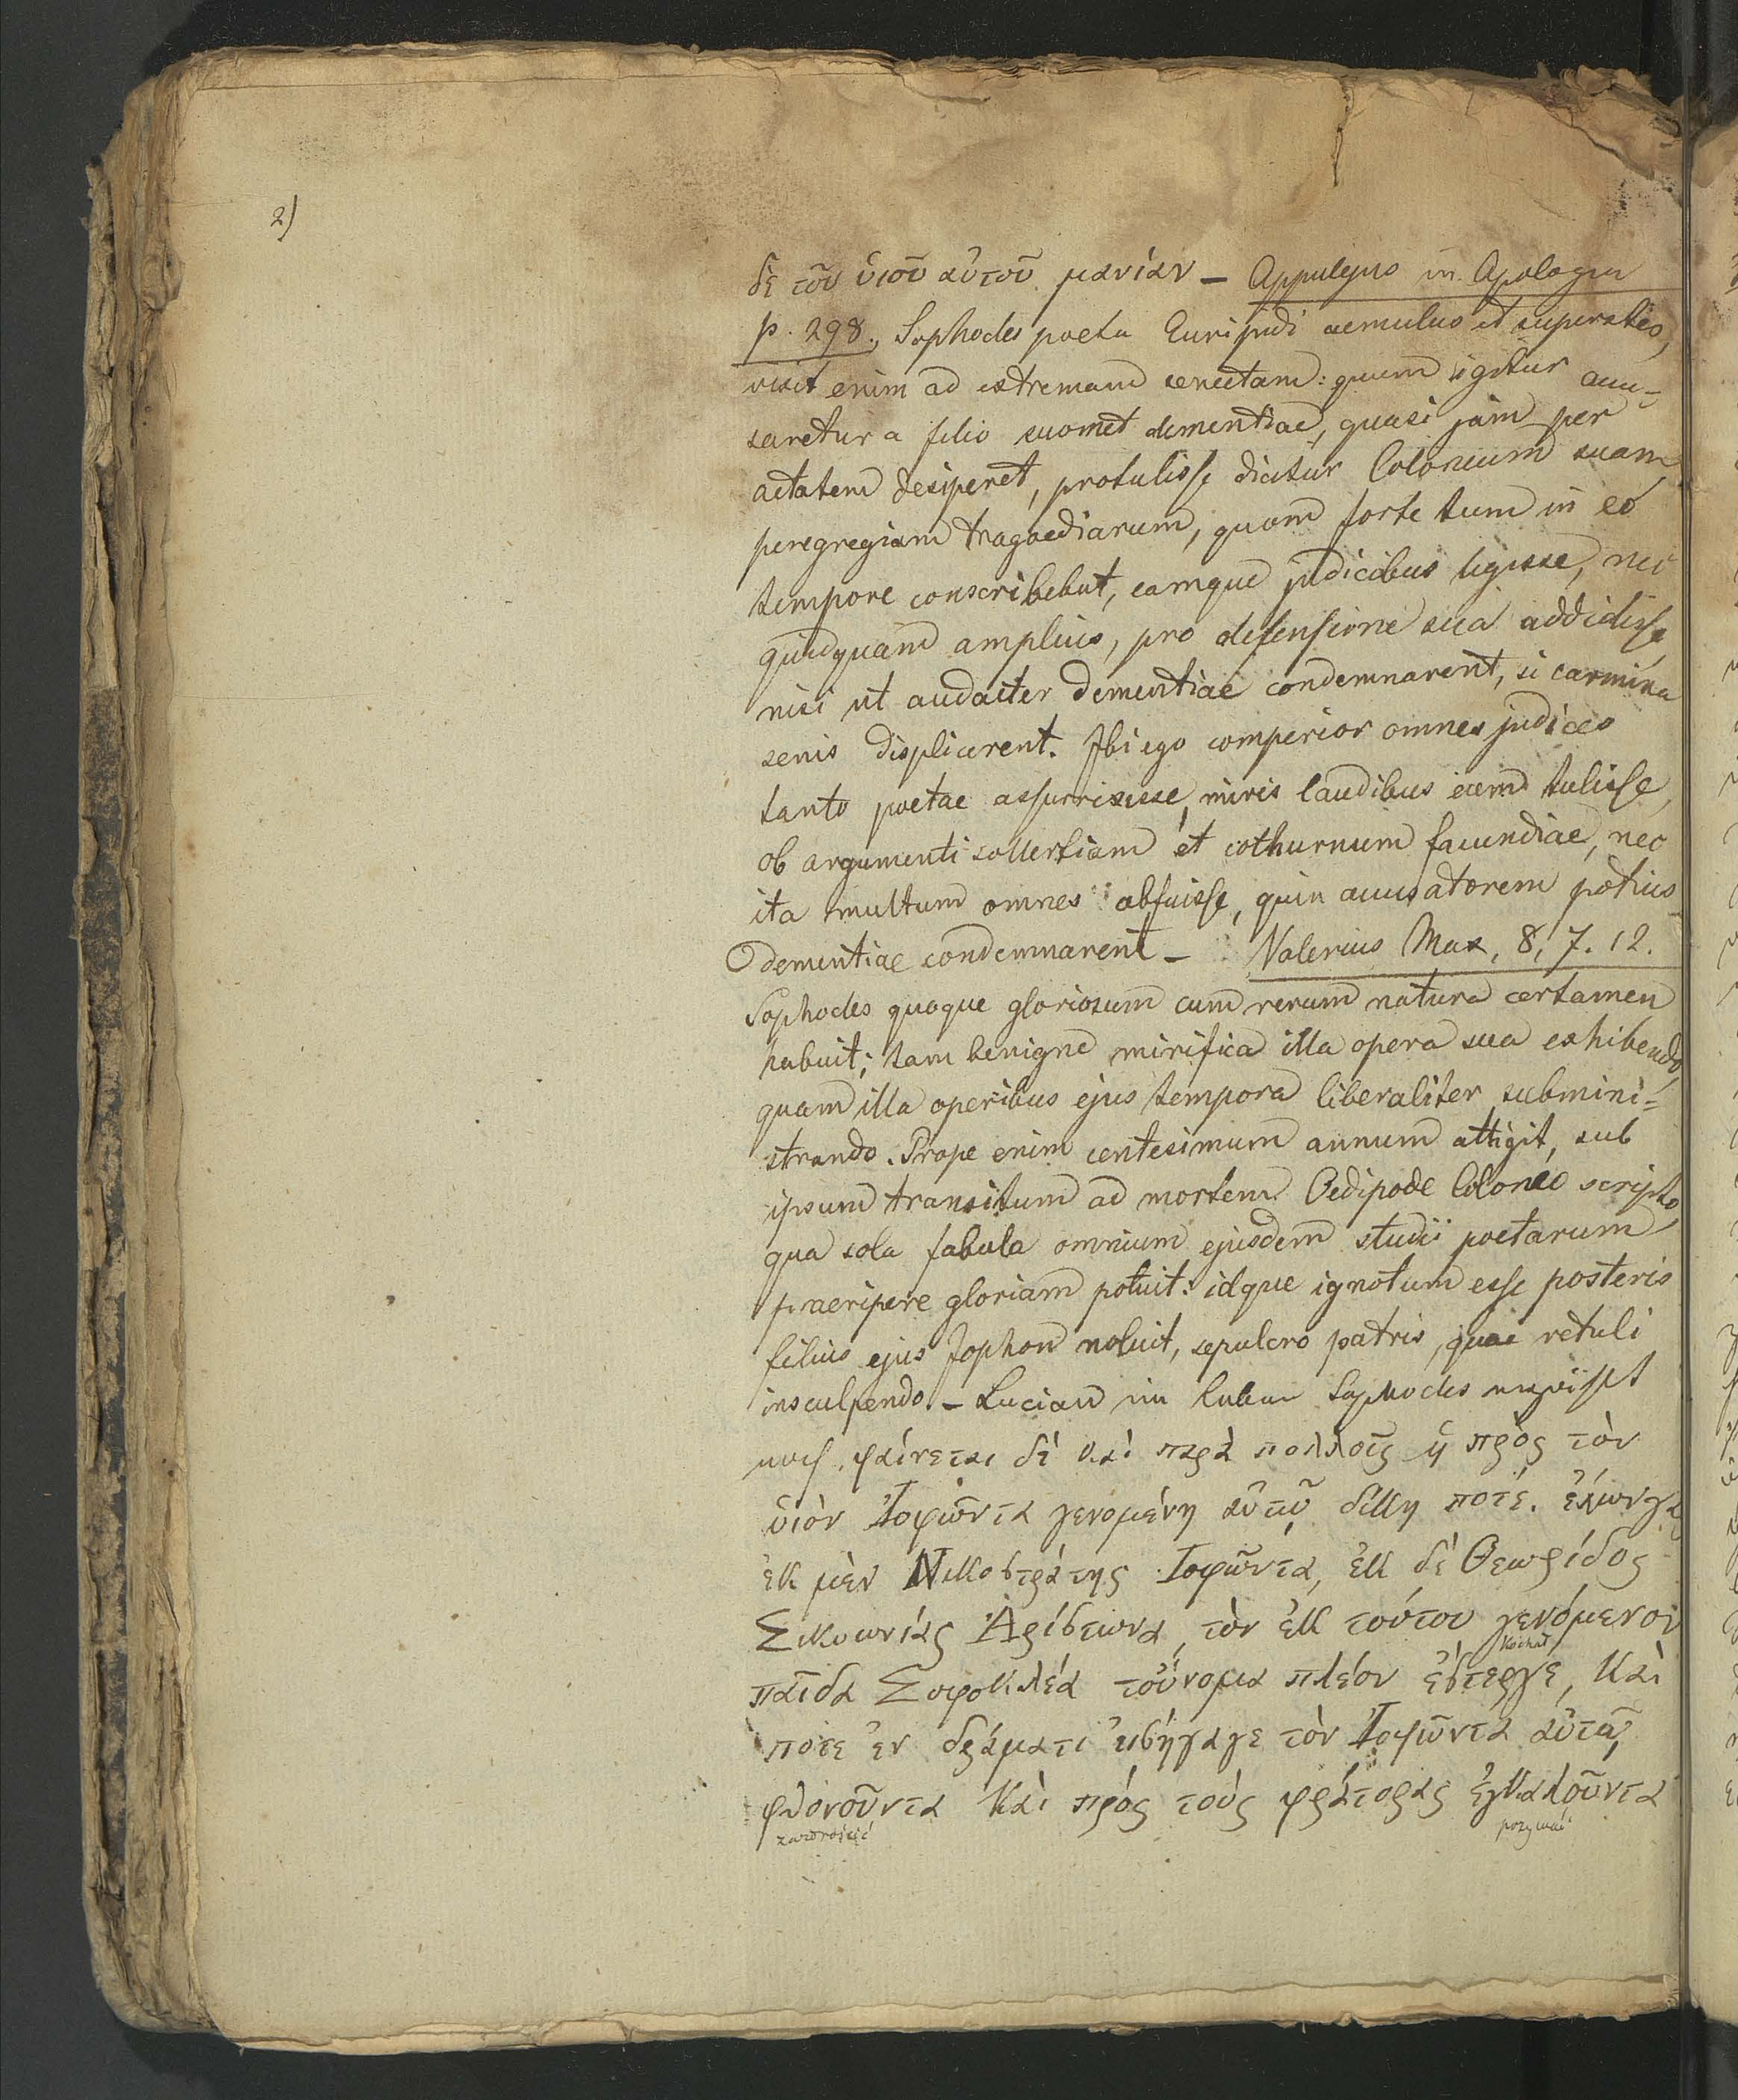 2)
δὲ τοῦ ὑιοῦ αὐτοῦ μανίαν – Appulejus in Apologia
p. 298., Sophocles poeta Euripidi aemulus et superstes,
vixit enim ad extremam senectam: quum igitur accu=
saretur a filio suomet dementiae, quasi jam per
aetatem desiperet, protulisse dicitur Coloneum suam
peregregiam tragaediarum, quam forte tum in eo
tempore conscribebat, eamque judicibus legisse, nec
quidquam amplius, pro defensione sua addidisse,
nisi ut audacter dementiae condemnarent, si carmina
senis displicerent. Ibi ego comperior omnes judices
tanto poetae assurrexisse, miris laudibus eum tulisse,
ob argumenti sollertiam et cothurnum facundiae, nec
ita multum omnes abfuisse, quin accusatorem potius
dementiae condemnarent – Valerius Max, 8, 7. 12.
Sophocles quoque gloriosum cum rerum natura certamen
habuit; tam benigne mirifica illa opera sua exhibendo,
quam illa operibus ejus tempora liberaliter submini=
strando. Prope enim centesimum annum attigit, sub
ipsum transitum ad mortem Oedipode Coloneo scripto,
qua sola fabula omnium ejusdem studii poetarum
praeripere gloriam potuit: idque ignotum esse posteris
filius ejus Jophon noluit, sepulcro patris, quae retuli
insculpendo. – Lucian Sophocles
φαίνεται δὲ καὶ παρὰ πολλοῖς ἡ πρὸς τὸν
ὑιὸν Ἰοφῶντα γενομένη αὐτῷ δίκη ποτέ. ἔχων γὰρ
ἐκ μὲν Νικοστράτης Ἰοφῶντα, ἐκ δὲ Θεωρίδος
Σικυωνίας Ἀρίστωνα, τὸν ἐκ τούτου γενόμενον
kochał
παῖδα Σοφοκλέα τοὔνομα πλέον ἔστεργε, Καὶ
ποτε ἐν δράματι εἰσήγαγε τὸν Ἰοφῶντα αὐτῷ
φθονοῦντα Καὶ πρὸς τοὺς φράτορας ἐγκαλοῦντα
zazdrościć pozywać